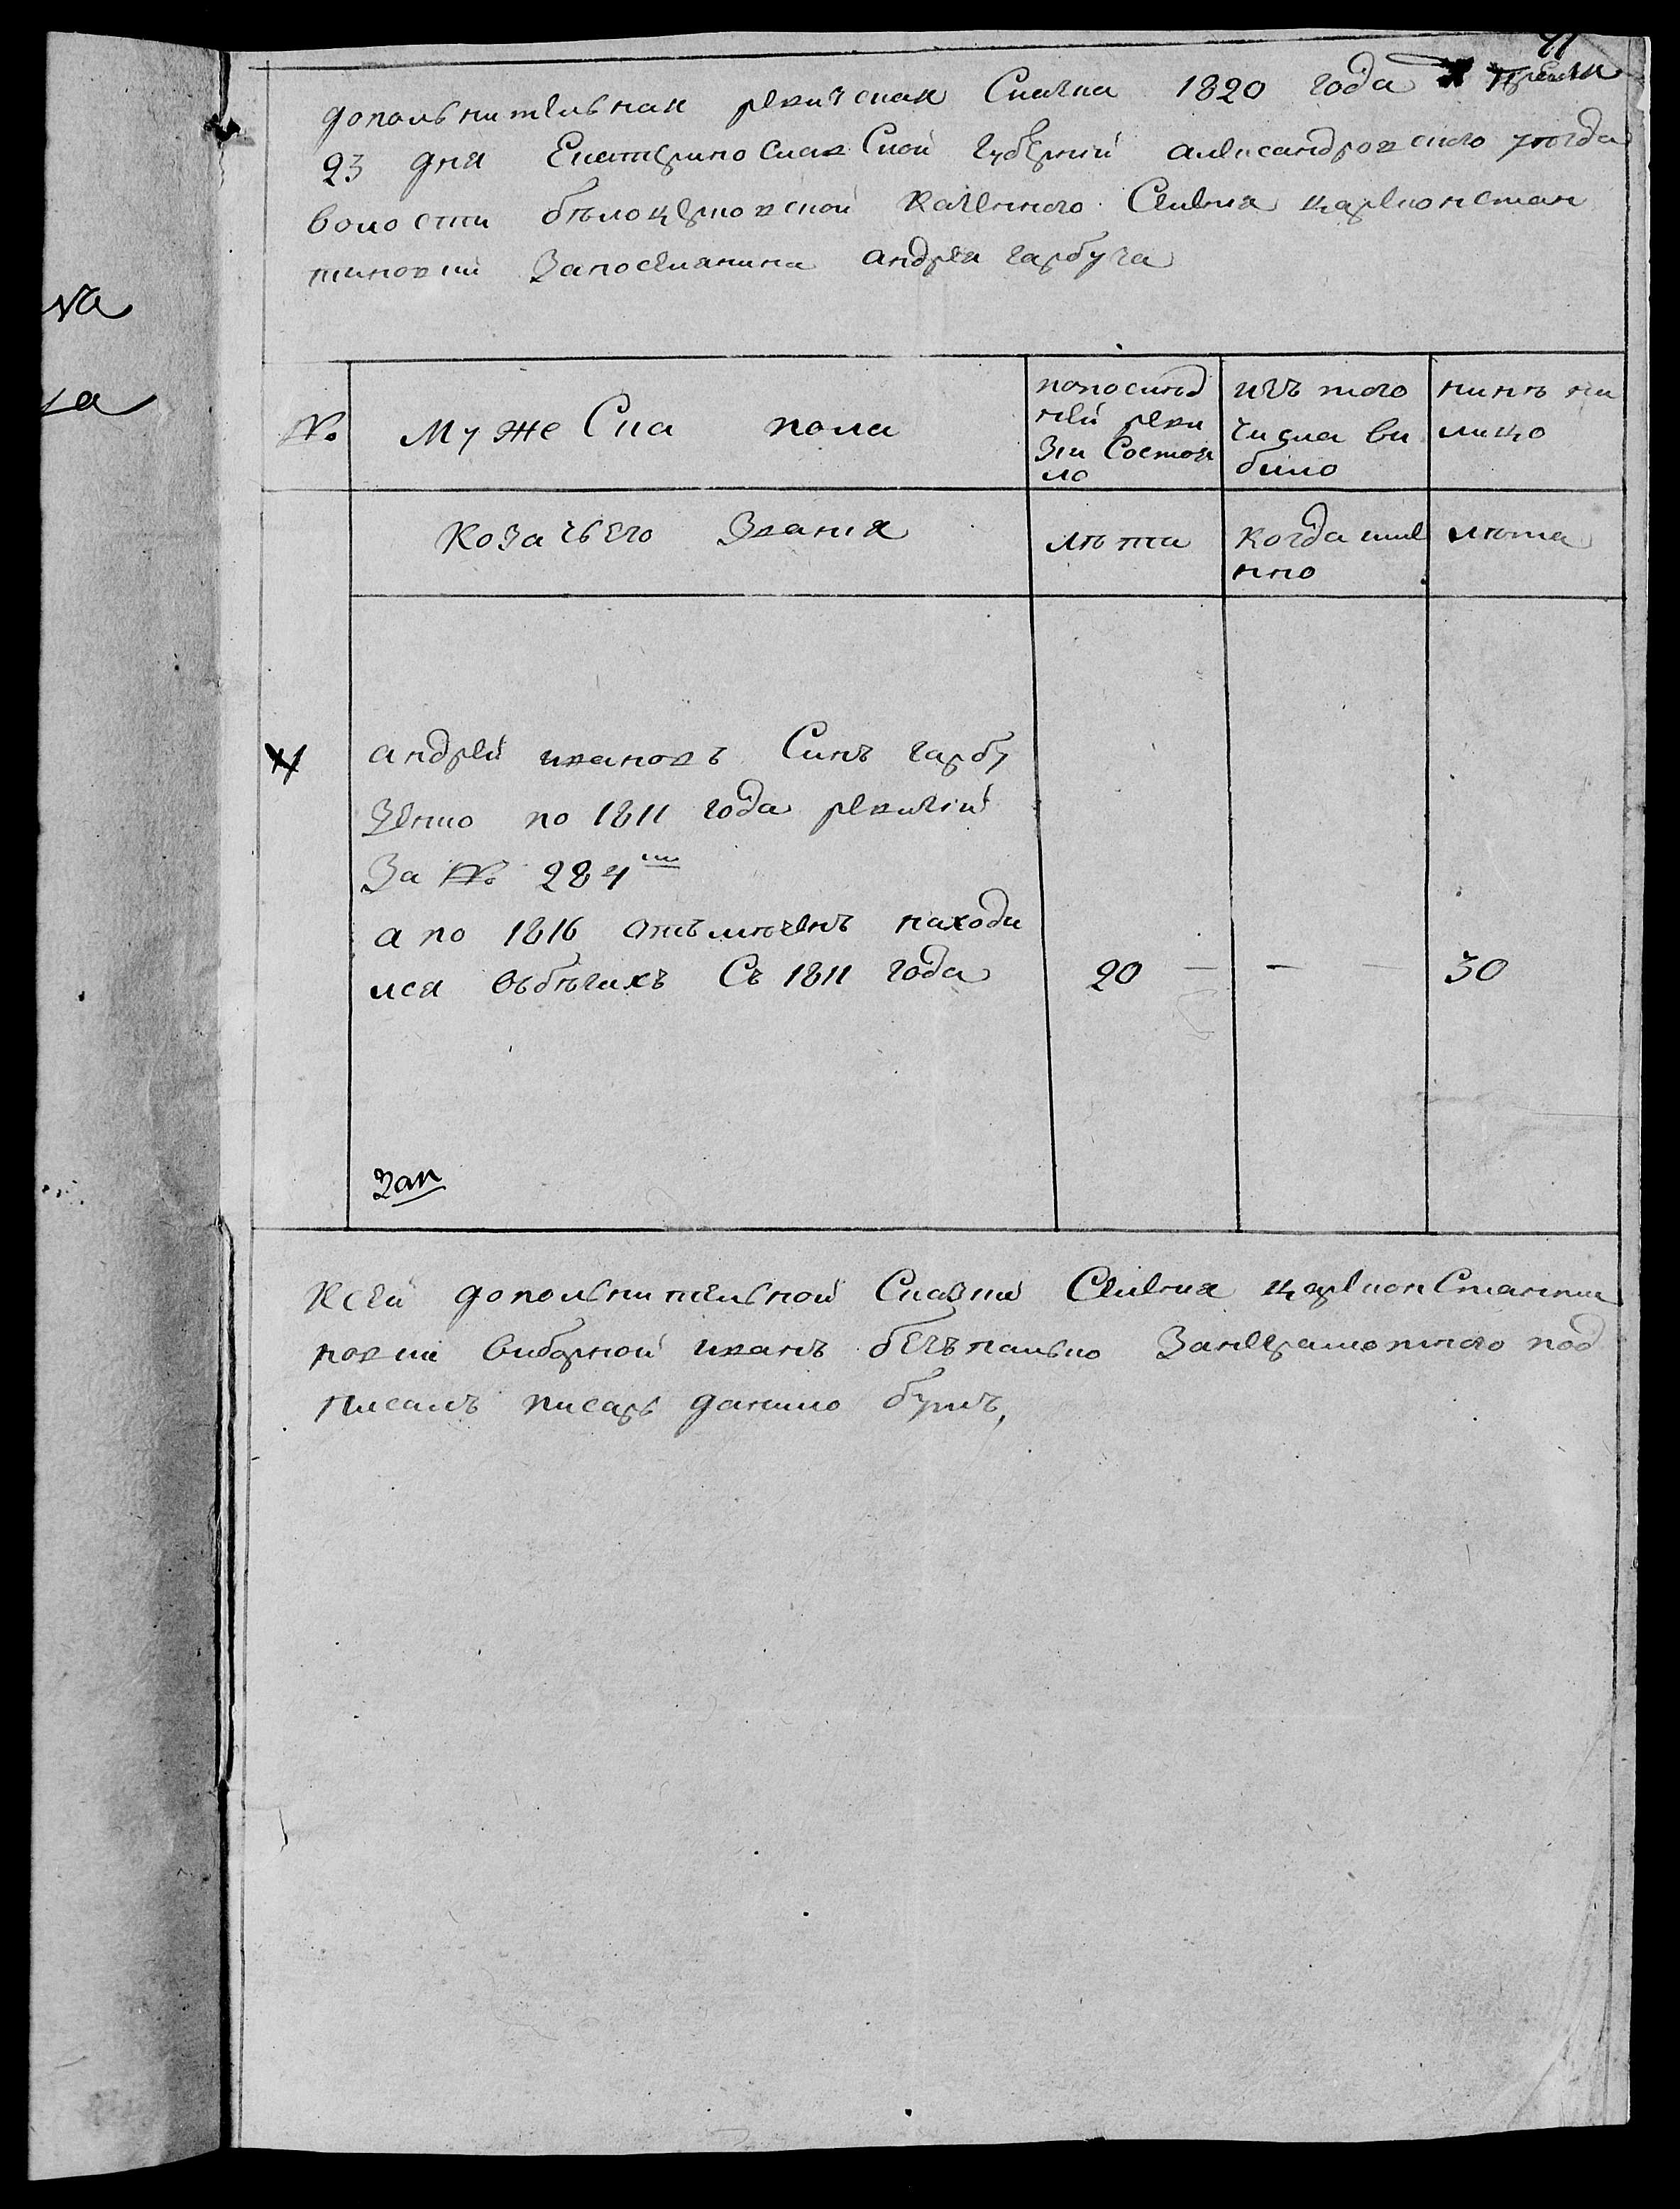 дополвнителвная ревизская Сказка 1820 года Апреля
23 дня Екатериославской губерний александровского уезда
волости белоцерковской казенного Селения цареконстан
тиновки Запоселянина андрея гарбуза
№
Мужеска пола
попоследней ревизии Состояло
изъ того числа выбило
нинѣ на лицо
Козачьего Звания
лѣта
когда именно
лѣта
андрей ивановъ Синъ гарбу
Зенко по 1811 года ревизий
За № 284
а по 1816 отъмѣченъ находи
лся въбѣгахъ Съ 1811 года
20 — — — 30
Ксей дополвнителвной Сказки Селения цареконСтанти
новки виборной иванъ безъпалько Занеграмотного под
писалъ писарь данило бутъ,